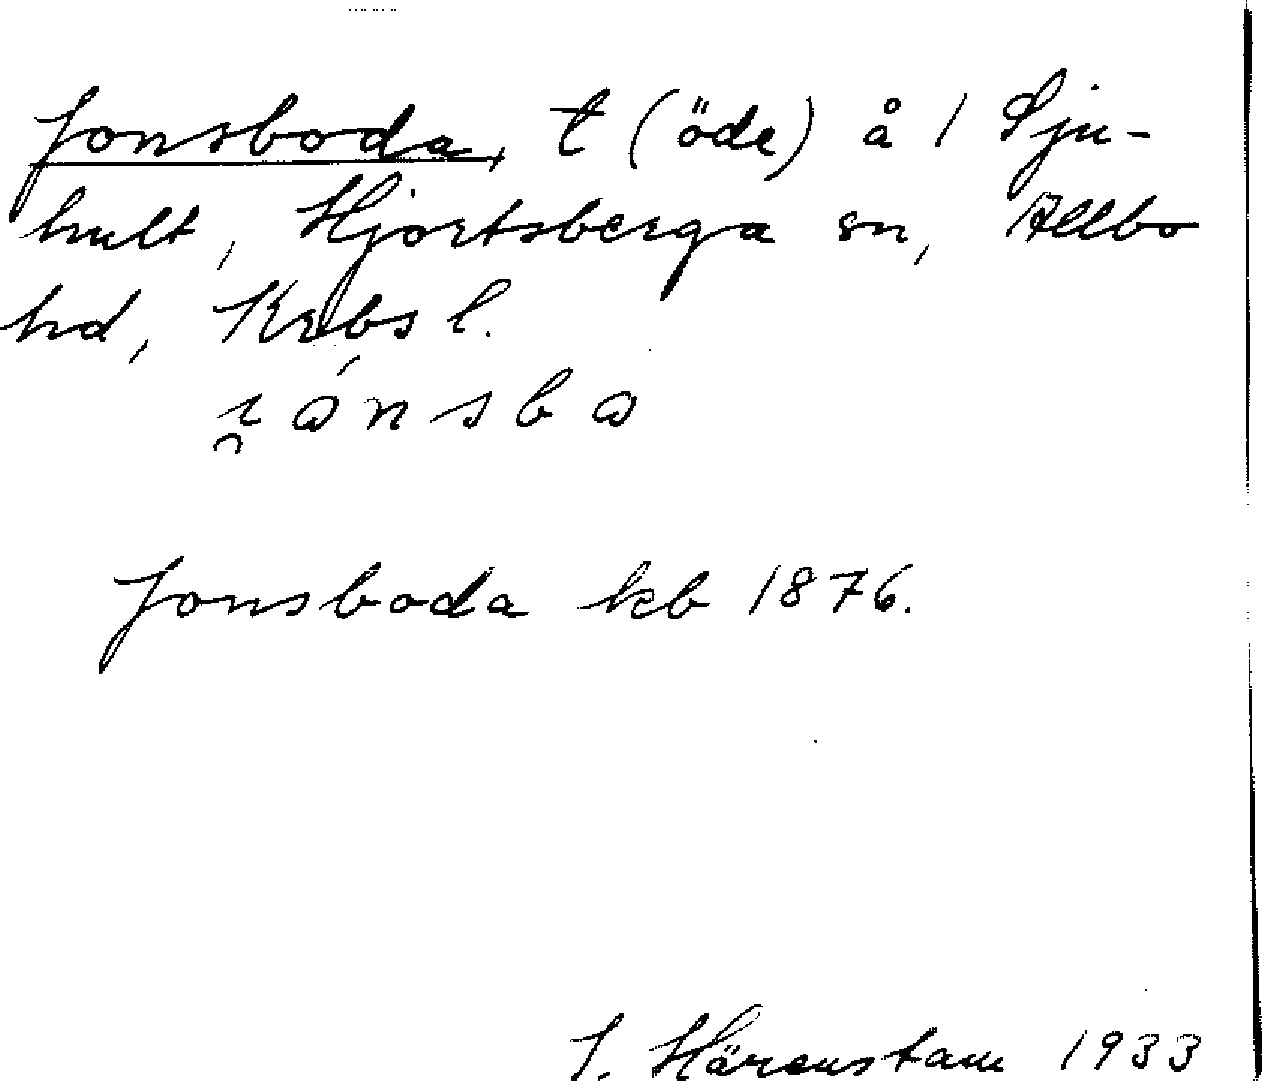 Jonsboda, t (öde) å 1 Sju-
hult, Hjortsberga sn, Allbo
hd, Krbs l.
i̯ɷ́nsbɷ
Jonsboda kb 1876.
J. Härenstam 1933